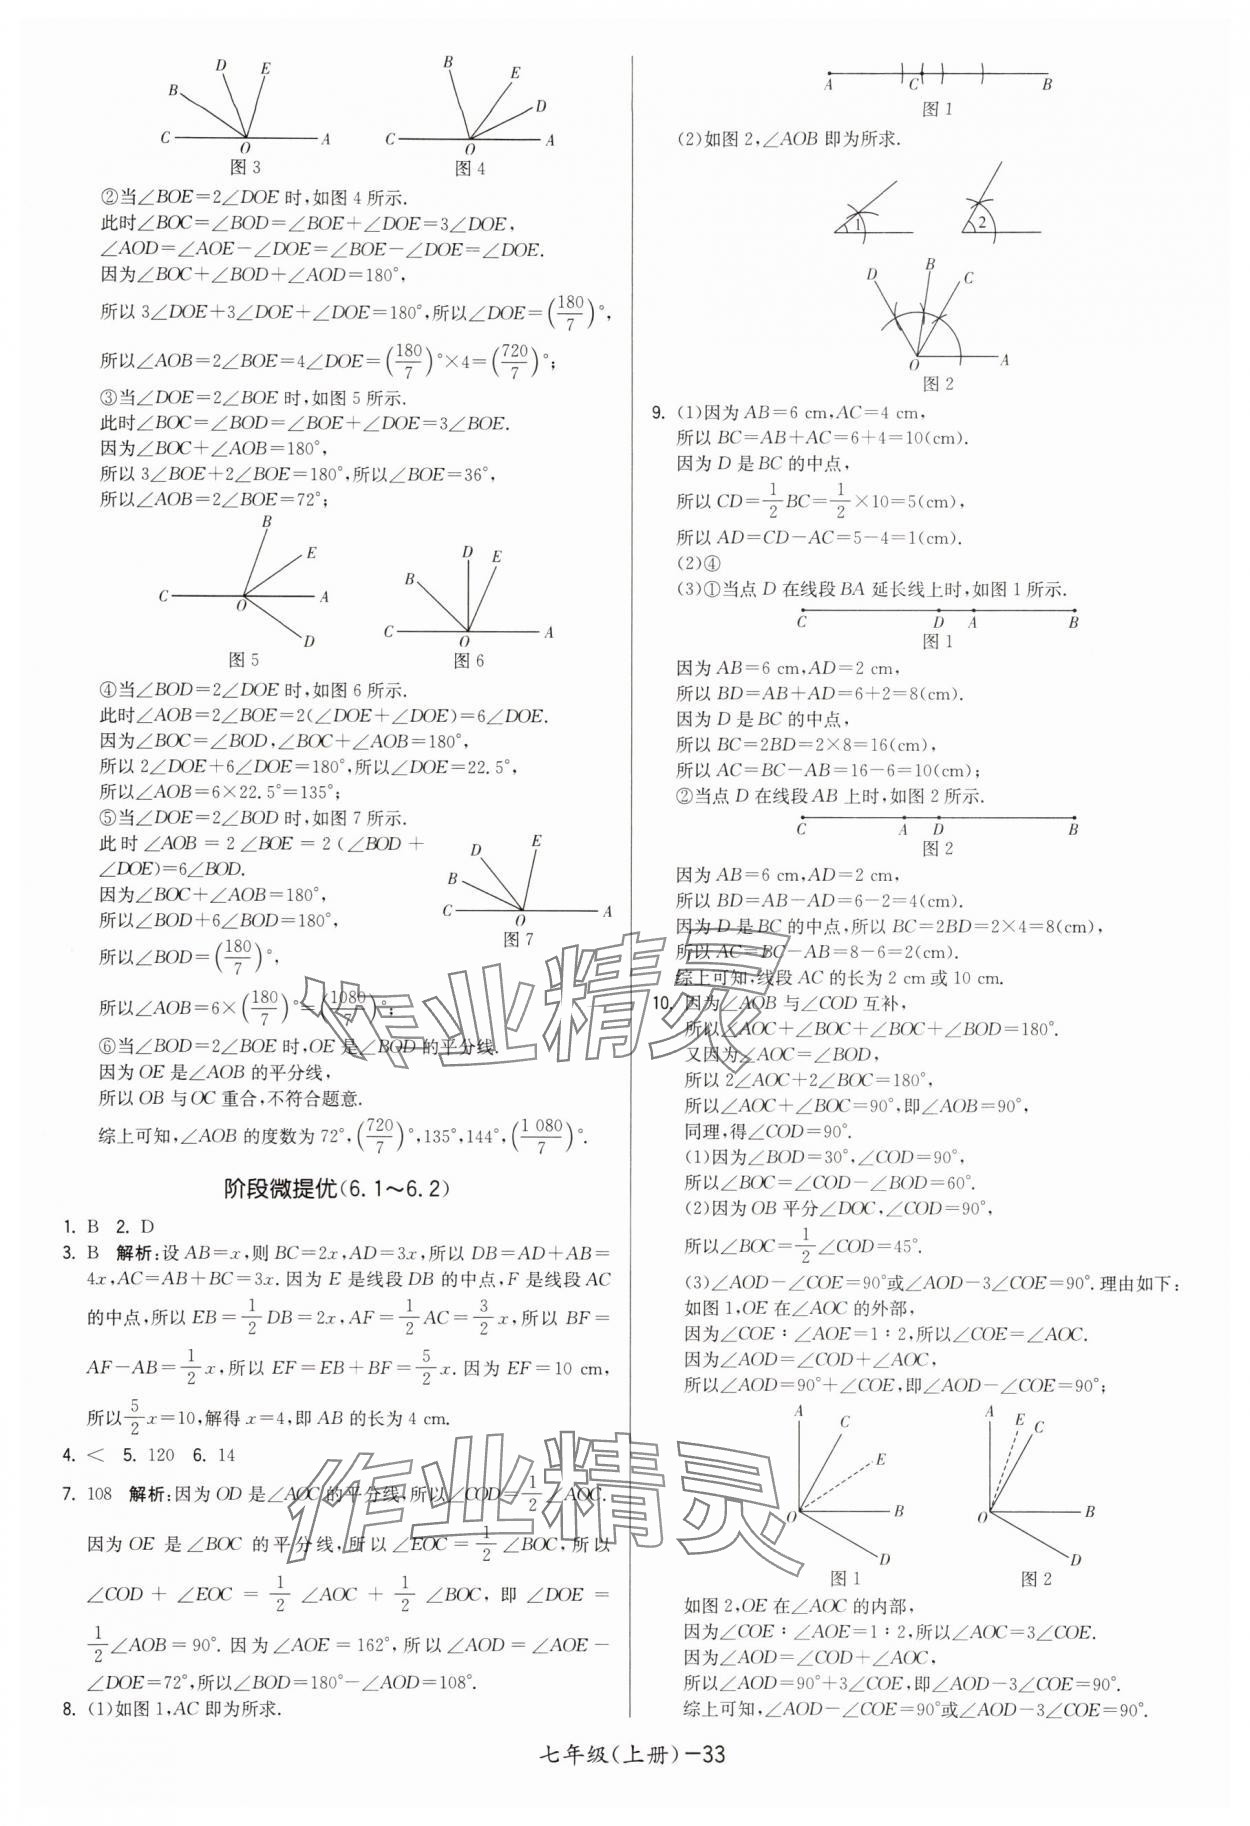 D E
B
C O A
图 3
B E
D
C O A
图 4
②当∠BOE=2∠DOE 时,如图 4 所示.
此时∠BOC=∠BOD=∠BOE+∠DOE=3∠DOE,
∠AOD=∠AOE-∠DOE=∠BOE-∠DOE=∠DOE.
因为∠BOC+∠BOD+∠AOD=180°,
所以 3∠DOE+3∠DOE+∠DOE=180°,所以∠DOE=(180/7)°,
所以∠AOB=2∠BOE=4∠DOE=(180/7)°×4=(720/7)°;
③当∠DOE=2∠BOE 时,如图 5 所示.
此时∠BOC=∠BOD=∠BOE+∠DOE=3∠BOE.
因为∠BOC+∠AOB=180°,
所以 3∠BOE+2∠BOE=180°,所以∠BOE=36°,
所以∠AOB=2∠BOE=72°;
B
E
C O A
D
图 5
D E
B
C O A
图 6
④当∠BOD=2∠DOE 时,如图 6 所示.
此时∠AOB=2∠BOE=2(∠DOE+∠DOE)=6∠DOE.
因为∠BOC=∠BOD,∠BOC+∠AOB=180°,
所以 2∠DOE+6∠DOE=180°,所以∠DOE=22.5°,
所以∠AOB=6×22.5°=135°;
⑤当∠DOE=2∠BOD 时,如图 7 所示.
此时∠AOB=2∠BOE=2(∠BOD+
∠DOE)=6∠BOD.
因为∠BOC+∠AOB=180°,
所以∠BOD+6∠BOD=180°,
D E
B
C O A
图 7
所以∠BOD=(180/7)°,
所以∠AOB=6×(180/7)°=(1080/7)°;
⑥当∠BOD=2∠BOE 时,OE 是∠BOD 的平分线.
因为 OE 是∠AOB 的平分线,
所以 OB 与 OC 重合,不符合题意.
综上可知,∠AOB 的度数为 72°,(720/7)°,135°,144°,(1 080/7)°.
阶段微提优(6.1~6.2)
1. B 2. D
3. B 解析:设 AB=x,则 BC=2x,AD=3x,所以 DB=AD+AB=
4x,AC=AB+BC=3x.因为 E 是线段 DB 的中点,F 是线段 AC
的中点,所以 EB=1/2DB=2x,AF=1/2AC=3/2x,所以 BF=
AF-AB=1/2x,所以 EF=EB+BF=5/2x.因为 EF=10 cm,
所以5/2x=10,解得 x=4,即 AB 的长为 4 cm.
4. < 5. 120 6. 14
7. 108 解析:因为 OD 是∠AOC 的平分线,所以∠COD=1/2∠AOC.
因为 OE 是∠BOC 的平分线,所以∠EOC=1/2∠BOC,所以
∠COD+∠EOC=1/2∠AOC+1/2∠BOC,即∠DOE=
1/2∠AOB=90°.因为∠AOE=162°,所以∠AOD=∠AOE-
∠DOE=72°,所以∠BOD=180°-∠AOD=108°.
8. (1)如图 1,AC 即为所求.
A C B
图 1
(2)如图 2,∠AOB 即为所求.
1 2
D B C
O A
图 2
9. (1)因为 AB=6 cm,AC=4 cm,
所以 BC=AB+AC=6+4=10(cm).
因为 D 是 BC 的中点,
所以 CD=1/2BC=1/2×10=5(cm),
所以 AD=CD-AC=5-4=1(cm).
(2)④
(3)①当点 D 在线段 BA 延长线上时,如图 1 所示.
C D A B
图 1
因为 AB=6 cm,AD=2 cm,
所以 BD=AB+AD=6+2=8(cm).
因为 D 是 BC 的中点,
所以 BC=2BD=2×8=16(cm),
所以 AC=BC-AB=16-6=10(cm);
②当点 D 在线段 AB 上时,如图 2 所示.
C A D B
图 2
因为 AB=6 cm,AD=2 cm,
所以 BD=AB-AD=6-2=4(cm).
因为 D 是 BC 的中点,所以 BC=2BD=2×4=8(cm),
所以 AC=BC-AB=8-6=2(cm).
综上可知,线段 AC 的长为 2 cm 或 10 cm.
10. 因为∠AOB 与∠COD 互补,
所以∠AOC+∠BOC+∠BOC+∠BOD=180°.
又因为∠AOC=∠BOD,
所以 2∠AOC+2∠BOC=180°,
所以∠AOC+∠BOC=90°,即∠AOB=90°,
同理,得∠COD=90°.
(1)因为∠BOD=30°,∠COD=90°,
所以∠BOC=∠COD-∠BOD=60°.
(2)因为 OB 平分∠DOC,∠COD=90°,
所以∠BOC=1/2∠COD=45°.
(3)∠AOD-∠COE=90°或∠AOD-3∠COE=90°.理由如下:
如图 1,OE 在∠AOC 的外部,
因为∠COE∶∠AOE=1∶2,所以∠COE=∠AOC.
因为∠AOD=∠COD+∠AOC,
所以∠AOD=90°+∠COE,即∠AOD-∠COE=90°;
A C
E
O B
D
图 1
A E C
O B
D
图 2
如图 2,OE 在∠AOC 的内部,
因为∠COE∶∠AOE=1∶2,所以∠AOC=3∠COE.
因为∠AOD=∠COD+∠AOC,
所以∠AOD=90°+3∠COE,即∠AOD-3∠COE=90°.
综上可知,∠AOD-∠COE=90°或∠AOD-3∠COE=90°.
作业精灵
作业精灵
七年级(上册)-33